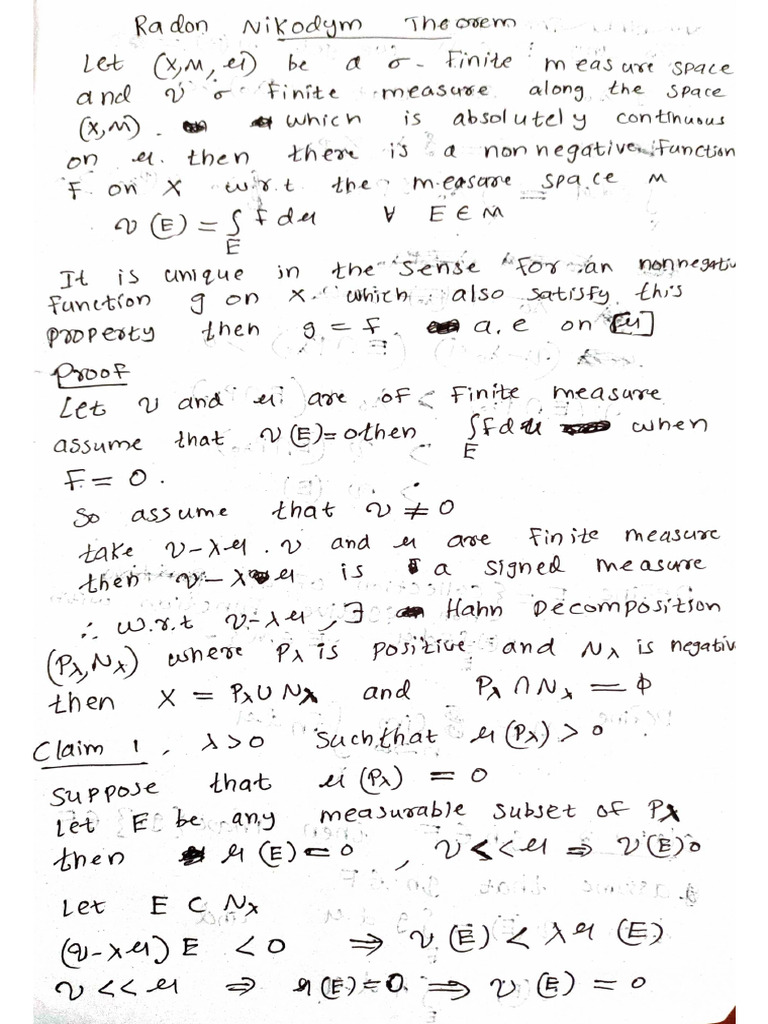 Radon Nikodym Theorem
Let (X, M, μ) be a σ-finite measure space
and ν σ finite measure along the space
(X, M). which is absolutely continuous
on μ. then there is a nonnegative function
F on X w.r.t the measure space M
ν(E) = ∫_E f dμ ∀ E ∈ M
It is unique in the sense for an nonnegativ
function g on X which also satisfy this
property then g = f. a.e on [μ]
Proof
Let ν and μ are of finite measure
assume that ν(E)=0 then ∫_E f dμ when
F = 0.
So assume that ν ≠ 0
take ν-λμ. ν and μ are finite measure
then ν-λμ is a signed measure
∴ w.r.t ν-λμ, ∃ Hahn Decomposition
(Pλ, Nλ) where Pλ is positive and Nλ is negativ
then X = Pλ ∪ Nλ and Pλ ∩ Nλ = ϕ
Claim 1, λ>0 such that μ(Pλ) > 0
suppose that μ(Pλ) = 0
Let E be any measurable subset of Pλ
then μ(E) = 0, ν<<μ ⇒ ν(E)0
Let E ⊂ Nλ
(ν-λμ)E < 0 ⇒ ν(E) < λμ(E)
ν<<μ ⇒ μ(E)=0 ⇒ ν(E) = 0